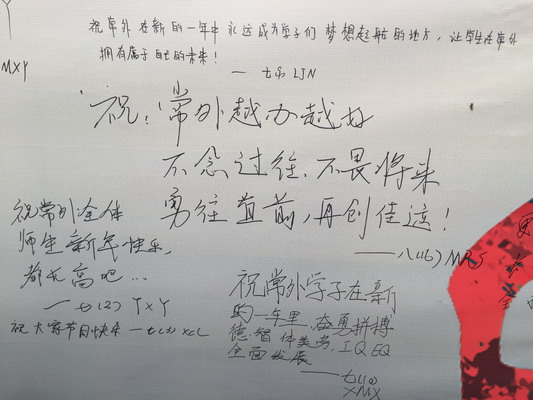 祝常外在新的一年中永远成为学子们梦想起航的地方,让学生在常外
拥有属于自己的未来!
MXY
祝:常外越办越好
不念过往,不畏将来
勇往直前,再创佳迹!
——八(16) MRS
祝常外全体
师生新年快乐,
都无高吧…
——七(2) YXY
祝大家节日快乐 —七(3) XCL
祝常外学子在新
的一年里,奋勇拼搏
德.智.体美劳.IQ EQ
全面发展
——七(10)
XMX
全